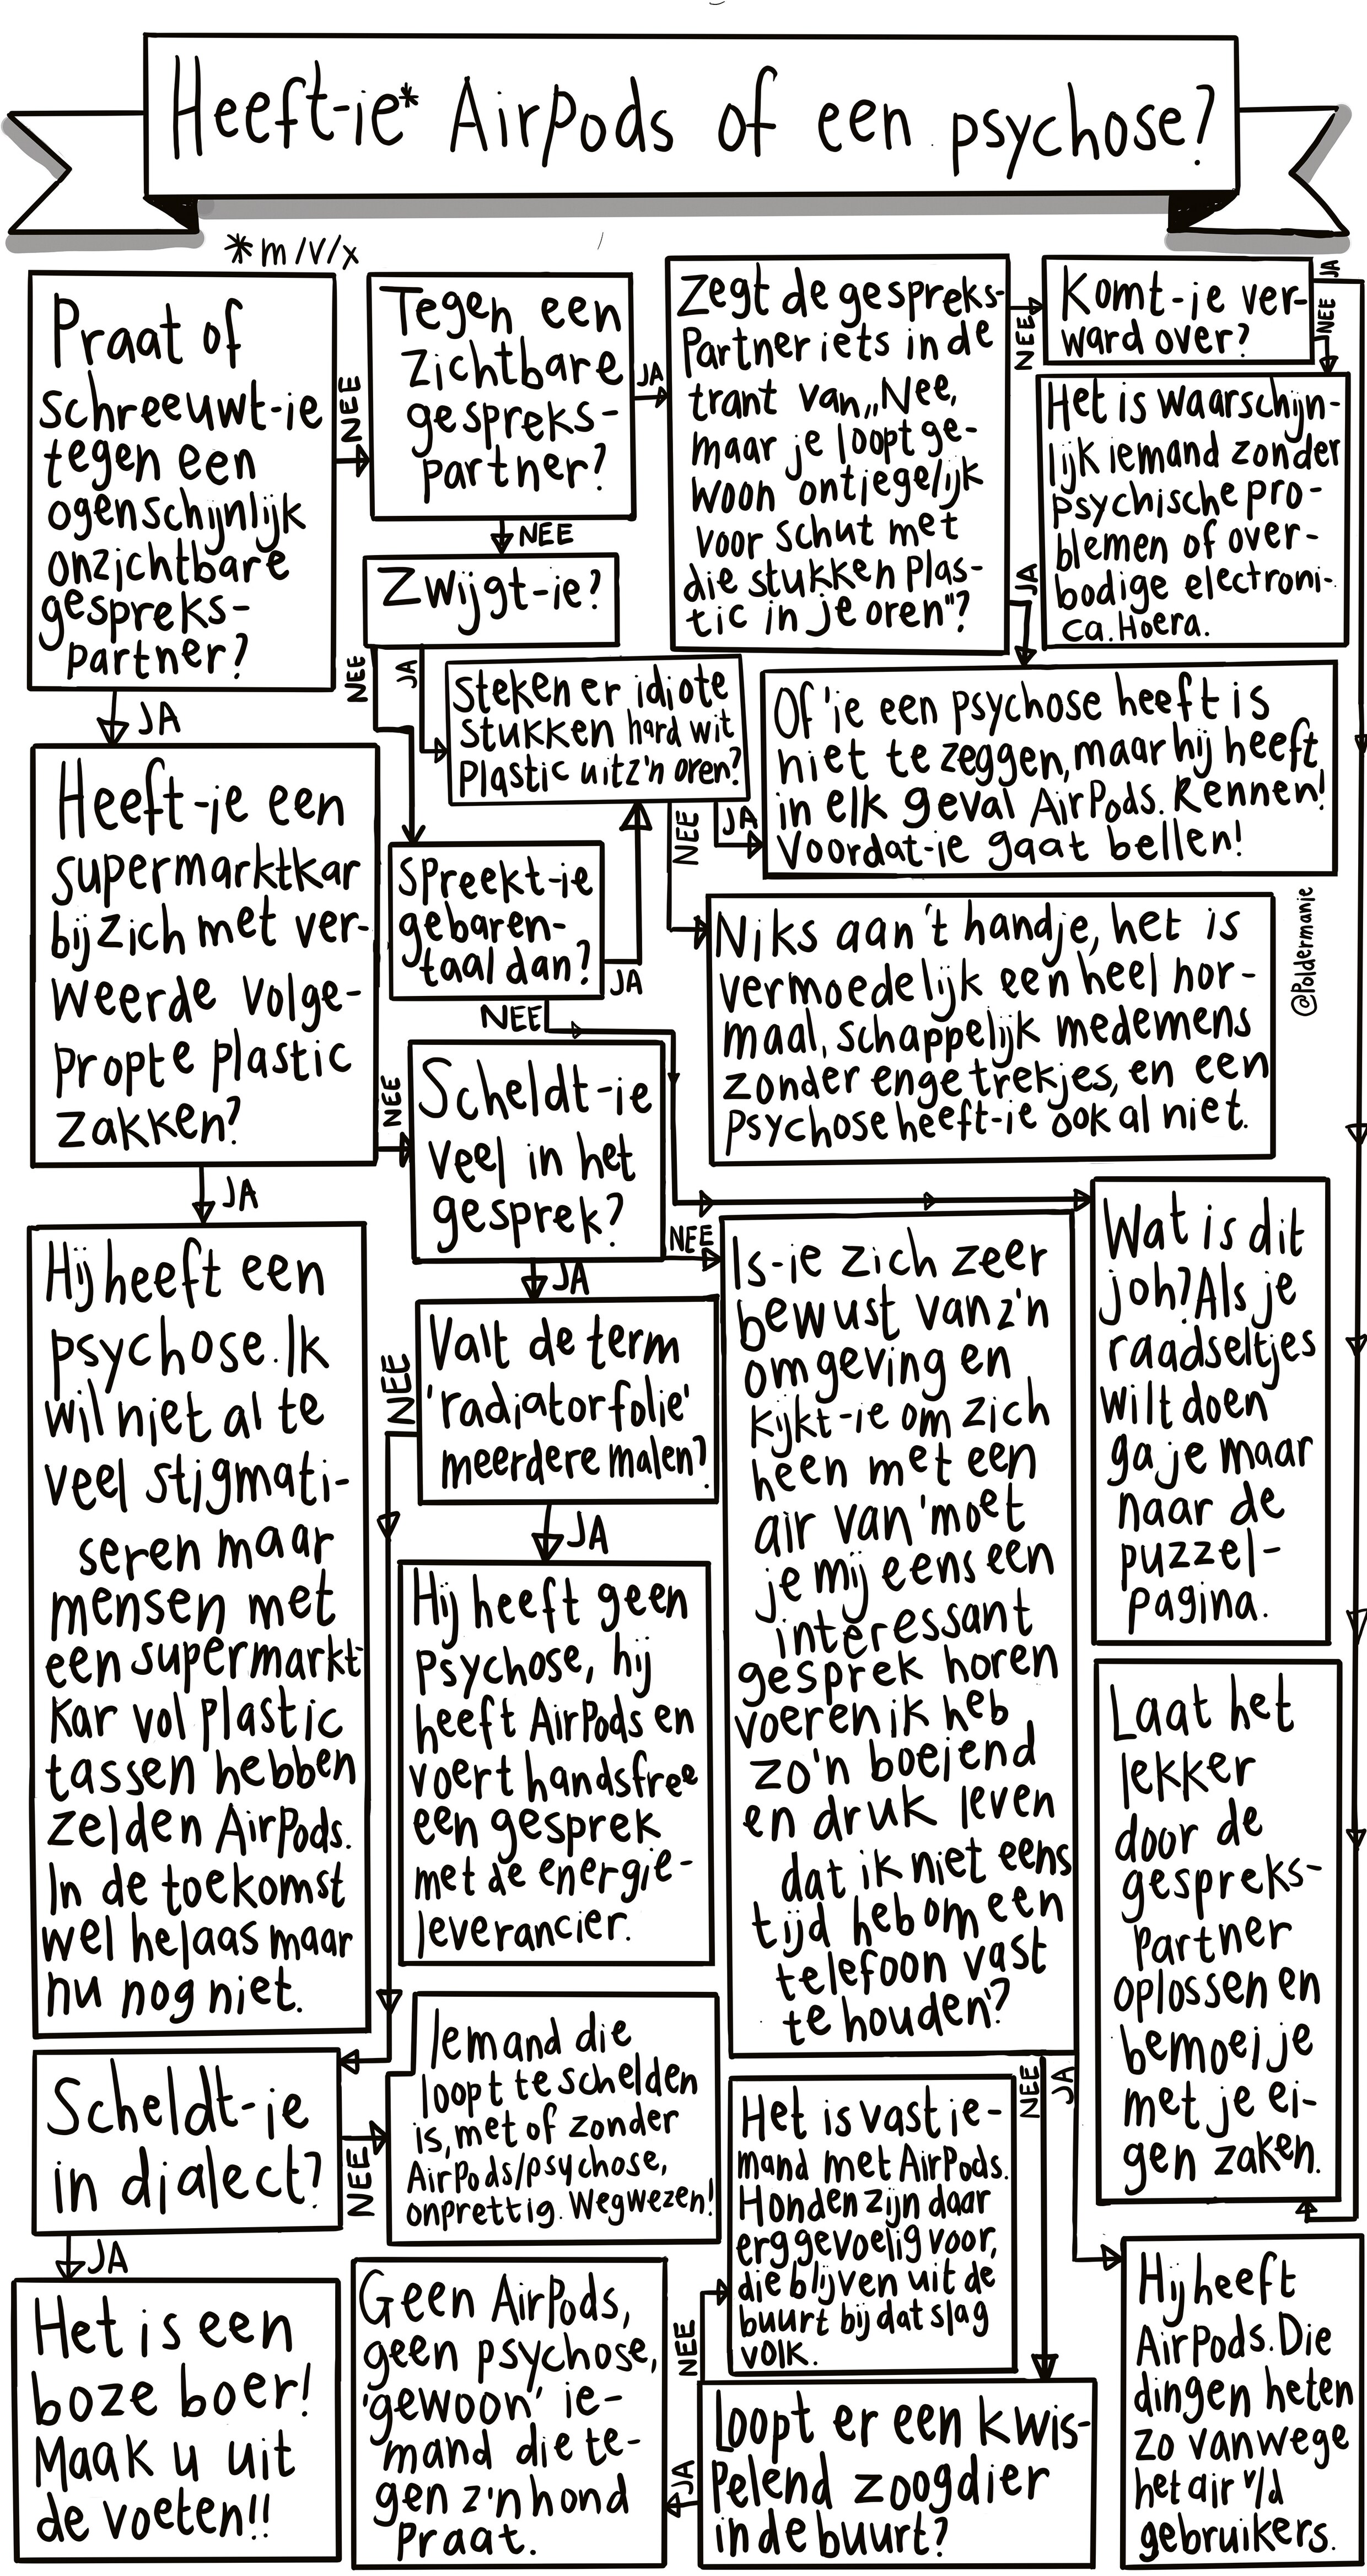 Heeft-ie* AirPods of een psychose?
*m/v/x
Praat of
schreeuwt-ie
tegen een
ogenschijnlijk
onzichtbare
gespreks-
partner?
NEE
JA
Tegen een
zichtbare
gespreks-
partner?
JA
NEE
Zegt de gespreks-
Partner iets in de
trant van „Nee,
maar je loopt ge-
woon ontiegelijk
voor schut met
die stukken plas-
tic in je oren"?
NEE
JA
Komt-ie ver-
ward over?
JA
NEE
Het is waarschijn-
lijk iemand zonder
psychische pro-
blemen of over-
bodige electroni-
ca. Hoera.
Zwijgt-ie?
NEE
JA
Steken er idiote
stukken hard wit
plastic uit z'n oren?
NEE
JA
Of 'ie een psychose heeft is
niet te zeggen, maar hij heeft
in elk geval AirPods. Rennen!
Voordat-ie gaat bellen!
Heeft-ie een
supermarktkar
bij zich met ver-
weerde volge-
propte plastic
zakken?
NEE
JA
Spreekt-ie
gebaren-
taal dan?
JA
NEE
Niks aan 't handje, het is
vermoedelijk een heel nor-
maal, schappelijk medemens
zonder enge trekjes, en een
psychose heeft-ie ook al niet.
@Poldermanje
Scheldt-ie
veel in het
gesprek?
NEE
JA
Wat is dit
joh? Als je
raadseltjes
wilt doen
ga je maar
naar de
puzzel-
pagina.
Hij heeft een
psychose. Ik
wil niet al te
veel stigmati-
seren maar
mensen met
een supermarkt
kar vol plastic
tassen hebben
zelden AirPods.
In de toekomst
wel helaas maar
nu nog niet.
Valt de term
'radiatorfolie'
meerdere malen?
NEE
JA
Hij heeft geen
psychose, hij
heeft AirPods en
voert handsfree
een gesprek
met de energie-
leverancier.
Is-ie zich zeer
bewust van z'n
omgeving en
kijkt-ie om zich
heen met een
air van 'moet
je mij eens een
interessant
gesprek horen
voeren ik heb
zo'n boeiend
en druk leven
dat ik niet eens
tijd heb om een
telefoon vast
te houden'?
NEE
JA
Laat het
lekker
door de
gespreks-
partner
oplossen en
bemoei je
met je ei-
gen zaken.
Scheldt-ie
in dialect?
NEE
JA
Iemand die
loopt te schelden
is, met of zonder
AirPods/psychose,
onprettig. Wegwezen!
Het is vast ie-
mand met AirPods.
Honden zijn daar
erg gevoelig voor,
die blijven uit de
buurt bij dat slag
volk.
Hij heeft
AirPods. Die
dingen heten
zo vanwege
het air v/d
gebruikers.
Het is een
boze boer!
Maak u uit
de voeten!!
Geen AirPods,
geen psychose,
'gewoon' ie-
mand die te-
gen z'n hond
praat.
NEE
JA
Loopt er een kwis-
pelend zoogdier
in de buurt?